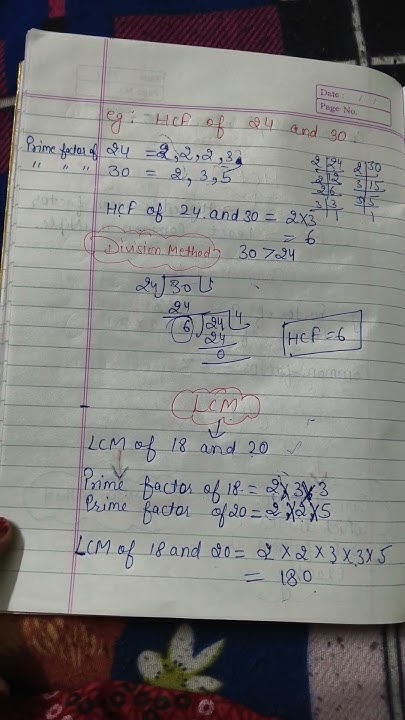 Date : / /
Page No.
eg: HCF of 24 and 30.
Prime factor of 24 = 2, 2, 2, 3,
" " " 30 = 2, 3, 5
2 24 2 30
2 12 3 15
2 6 5 5
3 3 1
1
HCF of 24 and 30 = 2x3
= 6
Division Method 30 > 24
24 30 1
24
6 24 4
24
0
HCF = 6
LCM
LCM of 18 and 20
Prime factor of 18 = 2 x 3 x 3
Prime factor of 20 = 2 x 2 x 5
LCM of 18 and 20 = 2 x 2 x 3 x 3 x 5
= 180